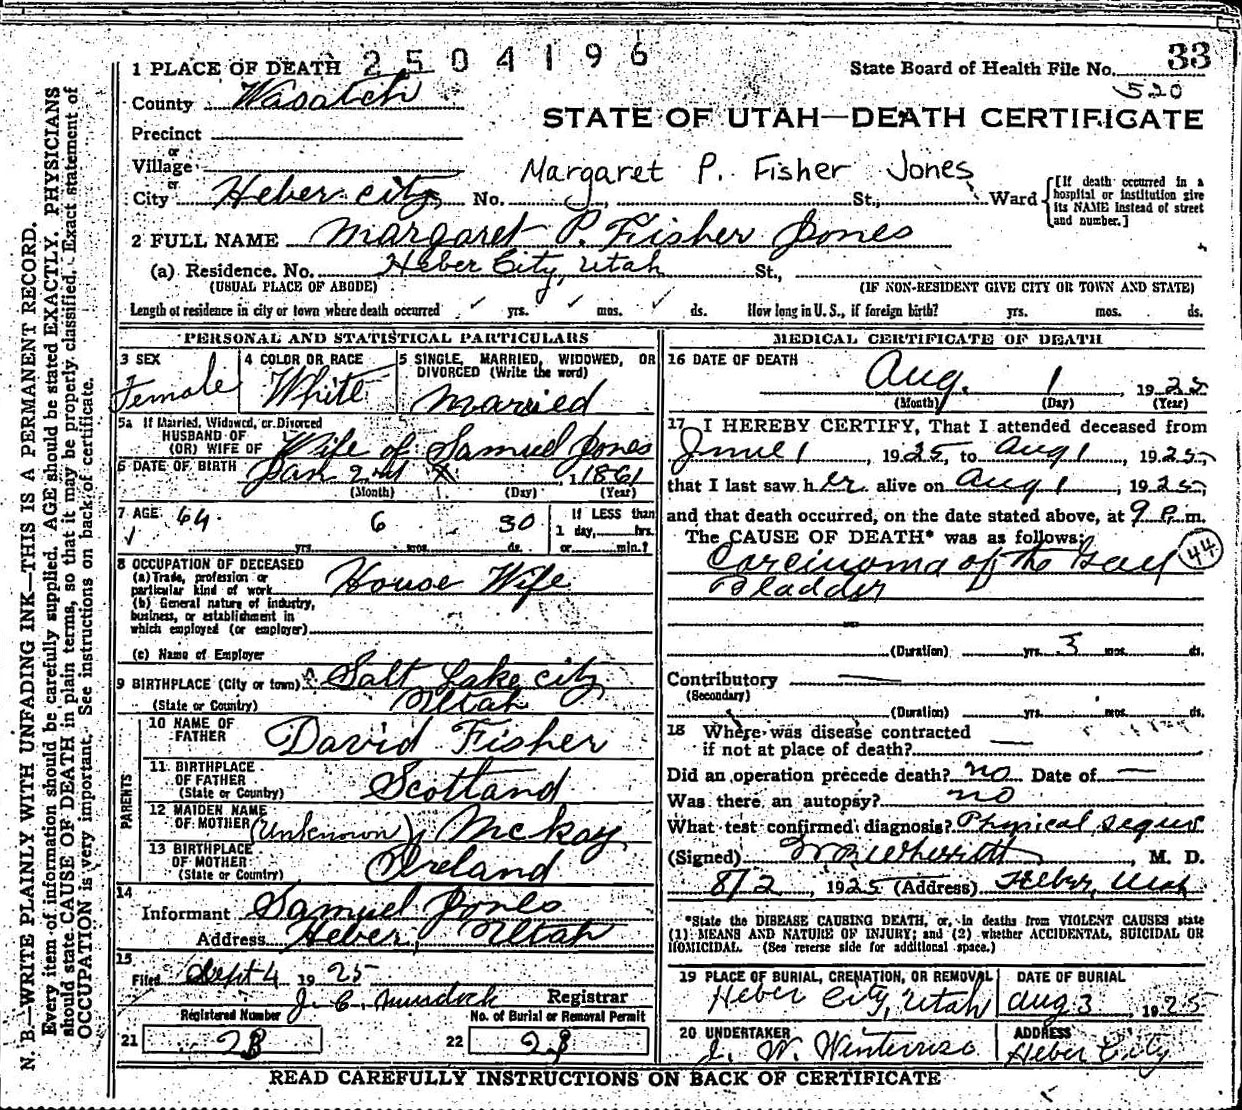 33
2504196
1 PLACE OF DEATH
State Board of Health File No.
520
County Wasatch
STATE OF UTAH—DEATH CERTIFICATE
Precinct
or
Village
Margaret P. Fisher Jones
or
City Heber City No. St., Ward [If death occurred in a hospital or institution give its NAME instead of street and number.]
2 FULL NAME Margaret P. Fisher Jones
(a) Residence. No. Heber City, Utah St.,
(USUAL PLACE OF ABODE) (IF NON-RESIDENT GIVE CITY OR TOWN AND STATE)
Length of residence in city or town where death occurred ✓ yrs. ✓ mos. ✓ ds. How long in U. S., if foreign birth? yrs. mos. ds.
PERSONAL AND STATISTICAL PARTICULARS
3 SEX
Female
4 COLOR OR RACE
White
5 SINGLE, MARRIED, WIDOWED, OR
DIVORCED (Write the word)
Married
5a If Married, Widowed, or Divorced
HUSBAND OF
(OR) WIFE OF Wife of Samuel Jones
6 DATE OF BIRTH Jan 2nd 1861
(Month) (Day) (Year)
7 AGE 64 6 30
yrs. mos. ds.
If LESS than
1 day, hrs.
or min.?
8 OCCUPATION OF DECEASED
(a) Trade, profession or
particular kind of work House Wife
(b) General nature of industry,
business, or establishment in
which employed (or employer)
(c) Name of Employer
9 BIRTHPLACE (City or town) Salt Lake City
(State or Country) Utah
PARENTS
10 NAME OF
FATHER David Fisher
11 BIRTHPLACE
OF FATHER
(State or Country) Scotland
12 MAIDEN NAME
OF MOTHER (Unknown) McKay
13 BIRTHPLACE
OF MOTHER
(State or Country) Ireland
14
Informant Samuel Jones
Address Heber, Utah
15
Filed Sept 4 1925
J. C. Murdock Registrar
Registered Number No. of Burial or Removal Permit
21 28
22 28
MEDICAL CERTIFICATE OF DEATH
16 DATE OF DEATH
Aug. 1, 1925
(Month) (Day) (Year)
17 I HEREBY CERTIFY, That I attended deceased from
June 1, 1925, to Aug 1, 1925,
that I last saw her alive on Aug 1, 1925,
and that death occurred, on the date stated above, at 9 P.m.
The CAUSE OF DEATH* was as follows:
Carcinoma of the Gall
44
Bladder
(Duration) yrs. 3 mos. ds.
Contributory
(Secondary)
(Duration) yrs. mos. ds.
18 Where was disease contracted
if not at place of death?
Did an operation precede death? no Date of —
Was there an autopsy? no
What test confirmed diagnosis? Physical signs
(Signed) , M. D.
8/2, 1925 (Address) Heber, Utah
*State the DISEASE CAUSING DEATH, or, in deaths from VIOLENT CAUSES state
(1) MEANS AND NATURE OF INJURY; and (2) whether ACCIDENTAL, SUICIDAL OR
HOMICIDAL. (See reverse side for additional space.)
19 PLACE OF BURIAL, CREMATION, OR REMOVAL
Heber City, Utah
DATE OF BURIAL
Aug 3 1925
20 UNDERTAKER
J. W. Winterrose
ADDRESS
Heber City
READ CAREFULLY INSTRUCTIONS ON BACK OF CERTIFICATE
N. B.—WRITE PLAINLY WITH UNFADING INK—THIS IS A PERMANENT RECORD.
Every item of information should be carefully supplied. AGE should be stated EXACTLY. PHYSICIANS
should state CAUSE OF DEATH in plain terms, so that it may be properly classified. Exact statement of
OCCUPATION is very important. See instructions on back of certificate.